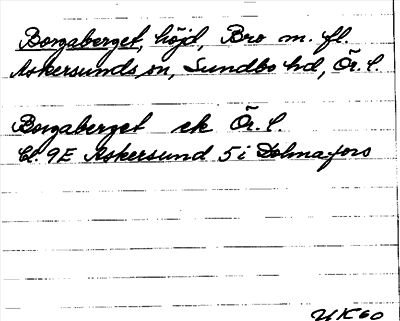 Borgaberget, höjd, Bro m. fl.
Askersunds sn, Sundbo hd, Ör. l.
Borgaberget ek Ör. l.
bl. 9E Askersund 5 i Dohnafors
UK60